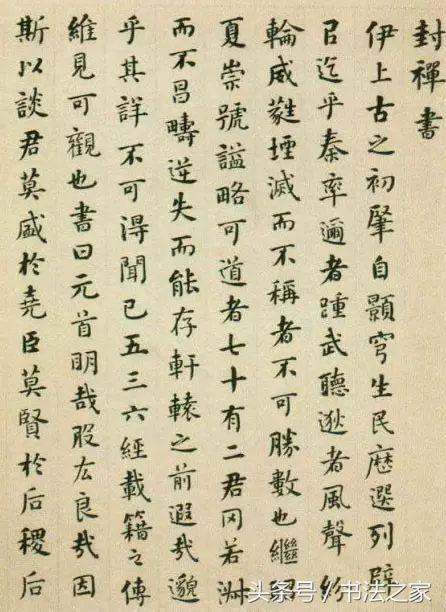 封禪書
伊上古之初肇自顥穹生民歷選列辟
㠯迄乎秦率邇者踵武聽逖者風聲紛
輪威蕤堙滅而不稱者不可勝數也繼
夏崇號謚略可道者七十有二君罔若淑
而不昌疇逆失而能存軒轅之前遐哉邈
乎其詳不可得聞已五三六經載籍之傳
維見可觀也書曰元首明哉股厷良哉因
斯以談君莫盛於堯臣莫賢於后稷后
头条号/书法之家